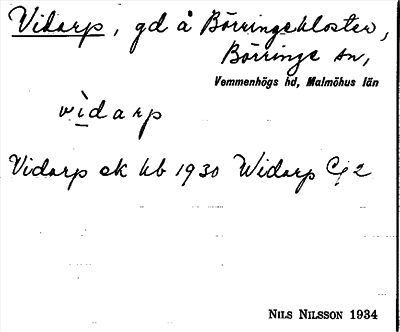 Vidarp, gd å Börringekloster,
Börringe sn,
Vemmenhögs hd, Malmöhus län
vìdarp
Vidarp ek kb 1930 Widarp
NILS NILSSON 1934